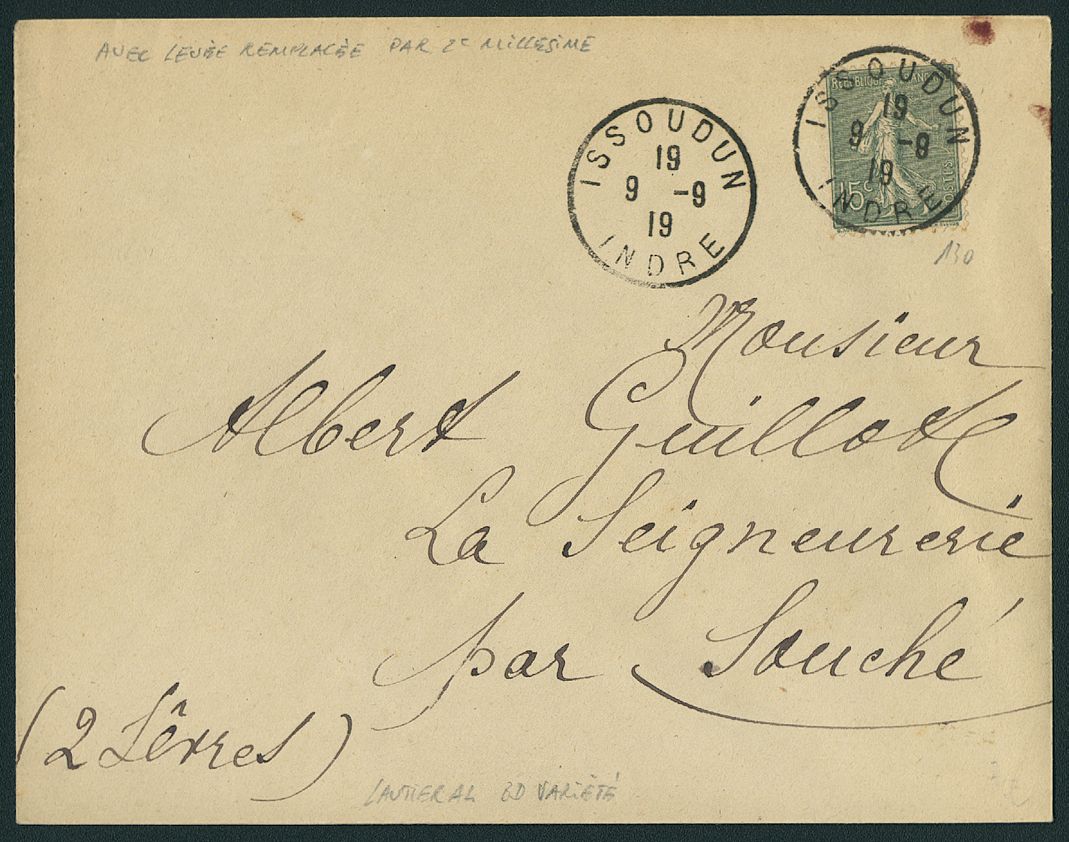 AVEC LEVÉE REMPLACÉE PAR 2e MILLESIME
ISSOUDUN
19
9 -9
19
INDRE
ISSOUDUN
19
9 -9
19
INDRE
15c
POSTES
130
Monsieur
Albert Guillot
La Seigneurerie
par Souché
(2 Sèvres)
VARIÉTÉ